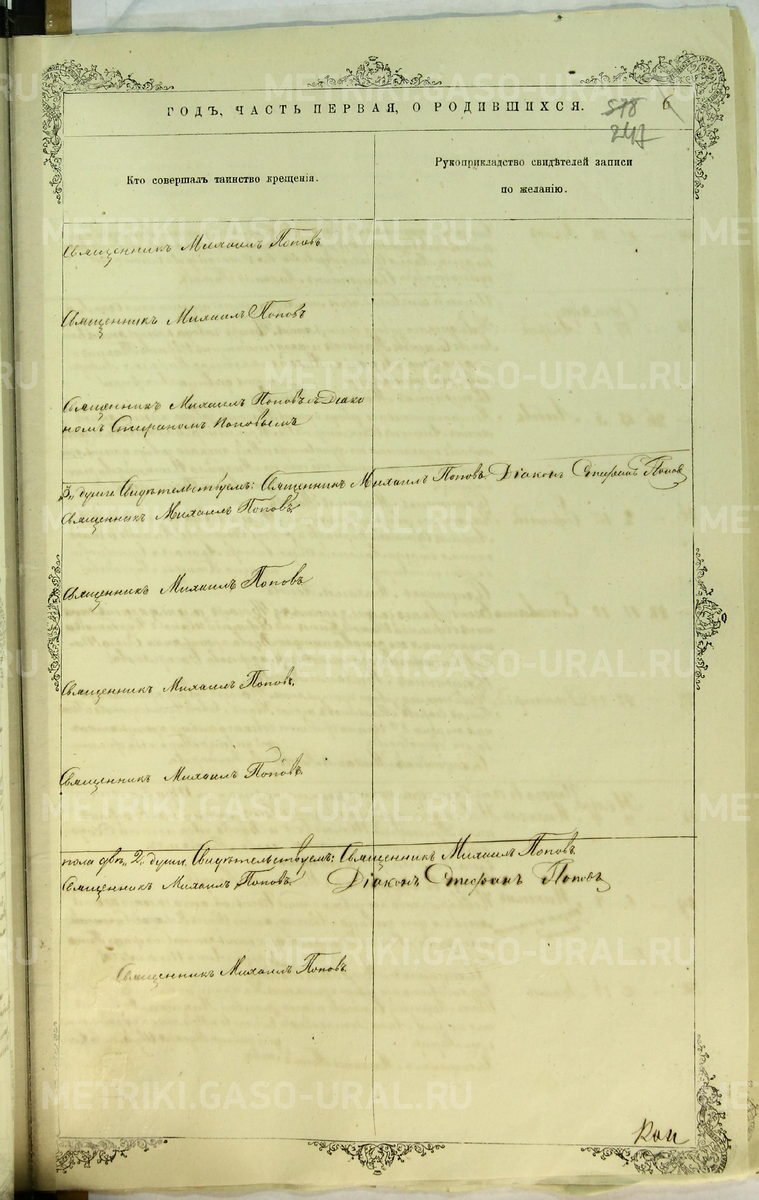 ГОДЪ, ЧАСТЬ ПЕРВАЯ, О РОДИВШИХСЯ.
518
6
247
Кто совершалъ таинство крещенія.
Рукоприкладство свидѣтелей записи
по желанію.
Священникъ Михаилъ Поповъ
Священникъ Михаилъ Поповъ
Священникъ Михаилъ Поповъ съ Діако
номъ Стефаномъ Поповымъ
„3„ души. Свидѣтельствуемъ: Священникъ Михаилъ Поповъ. Діаконъ Стефанъ Поповъ
Священникъ Михаилъ Поповъ
Священникъ Михаилъ Поповъ
Священникъ Михаилъ Поповъ.
Священникъ Михаилъ Поповъ.
пола двѣ „2„ души. Свидѣтельствуемъ: Священникъ Михаилъ Поповъ
Священникъ Михаилъ Поповъ. Діаконъ Стефанъ Поповъ
Священникъ Михаилъ Поповъ.
METRIKI.GASO-URAL.RU